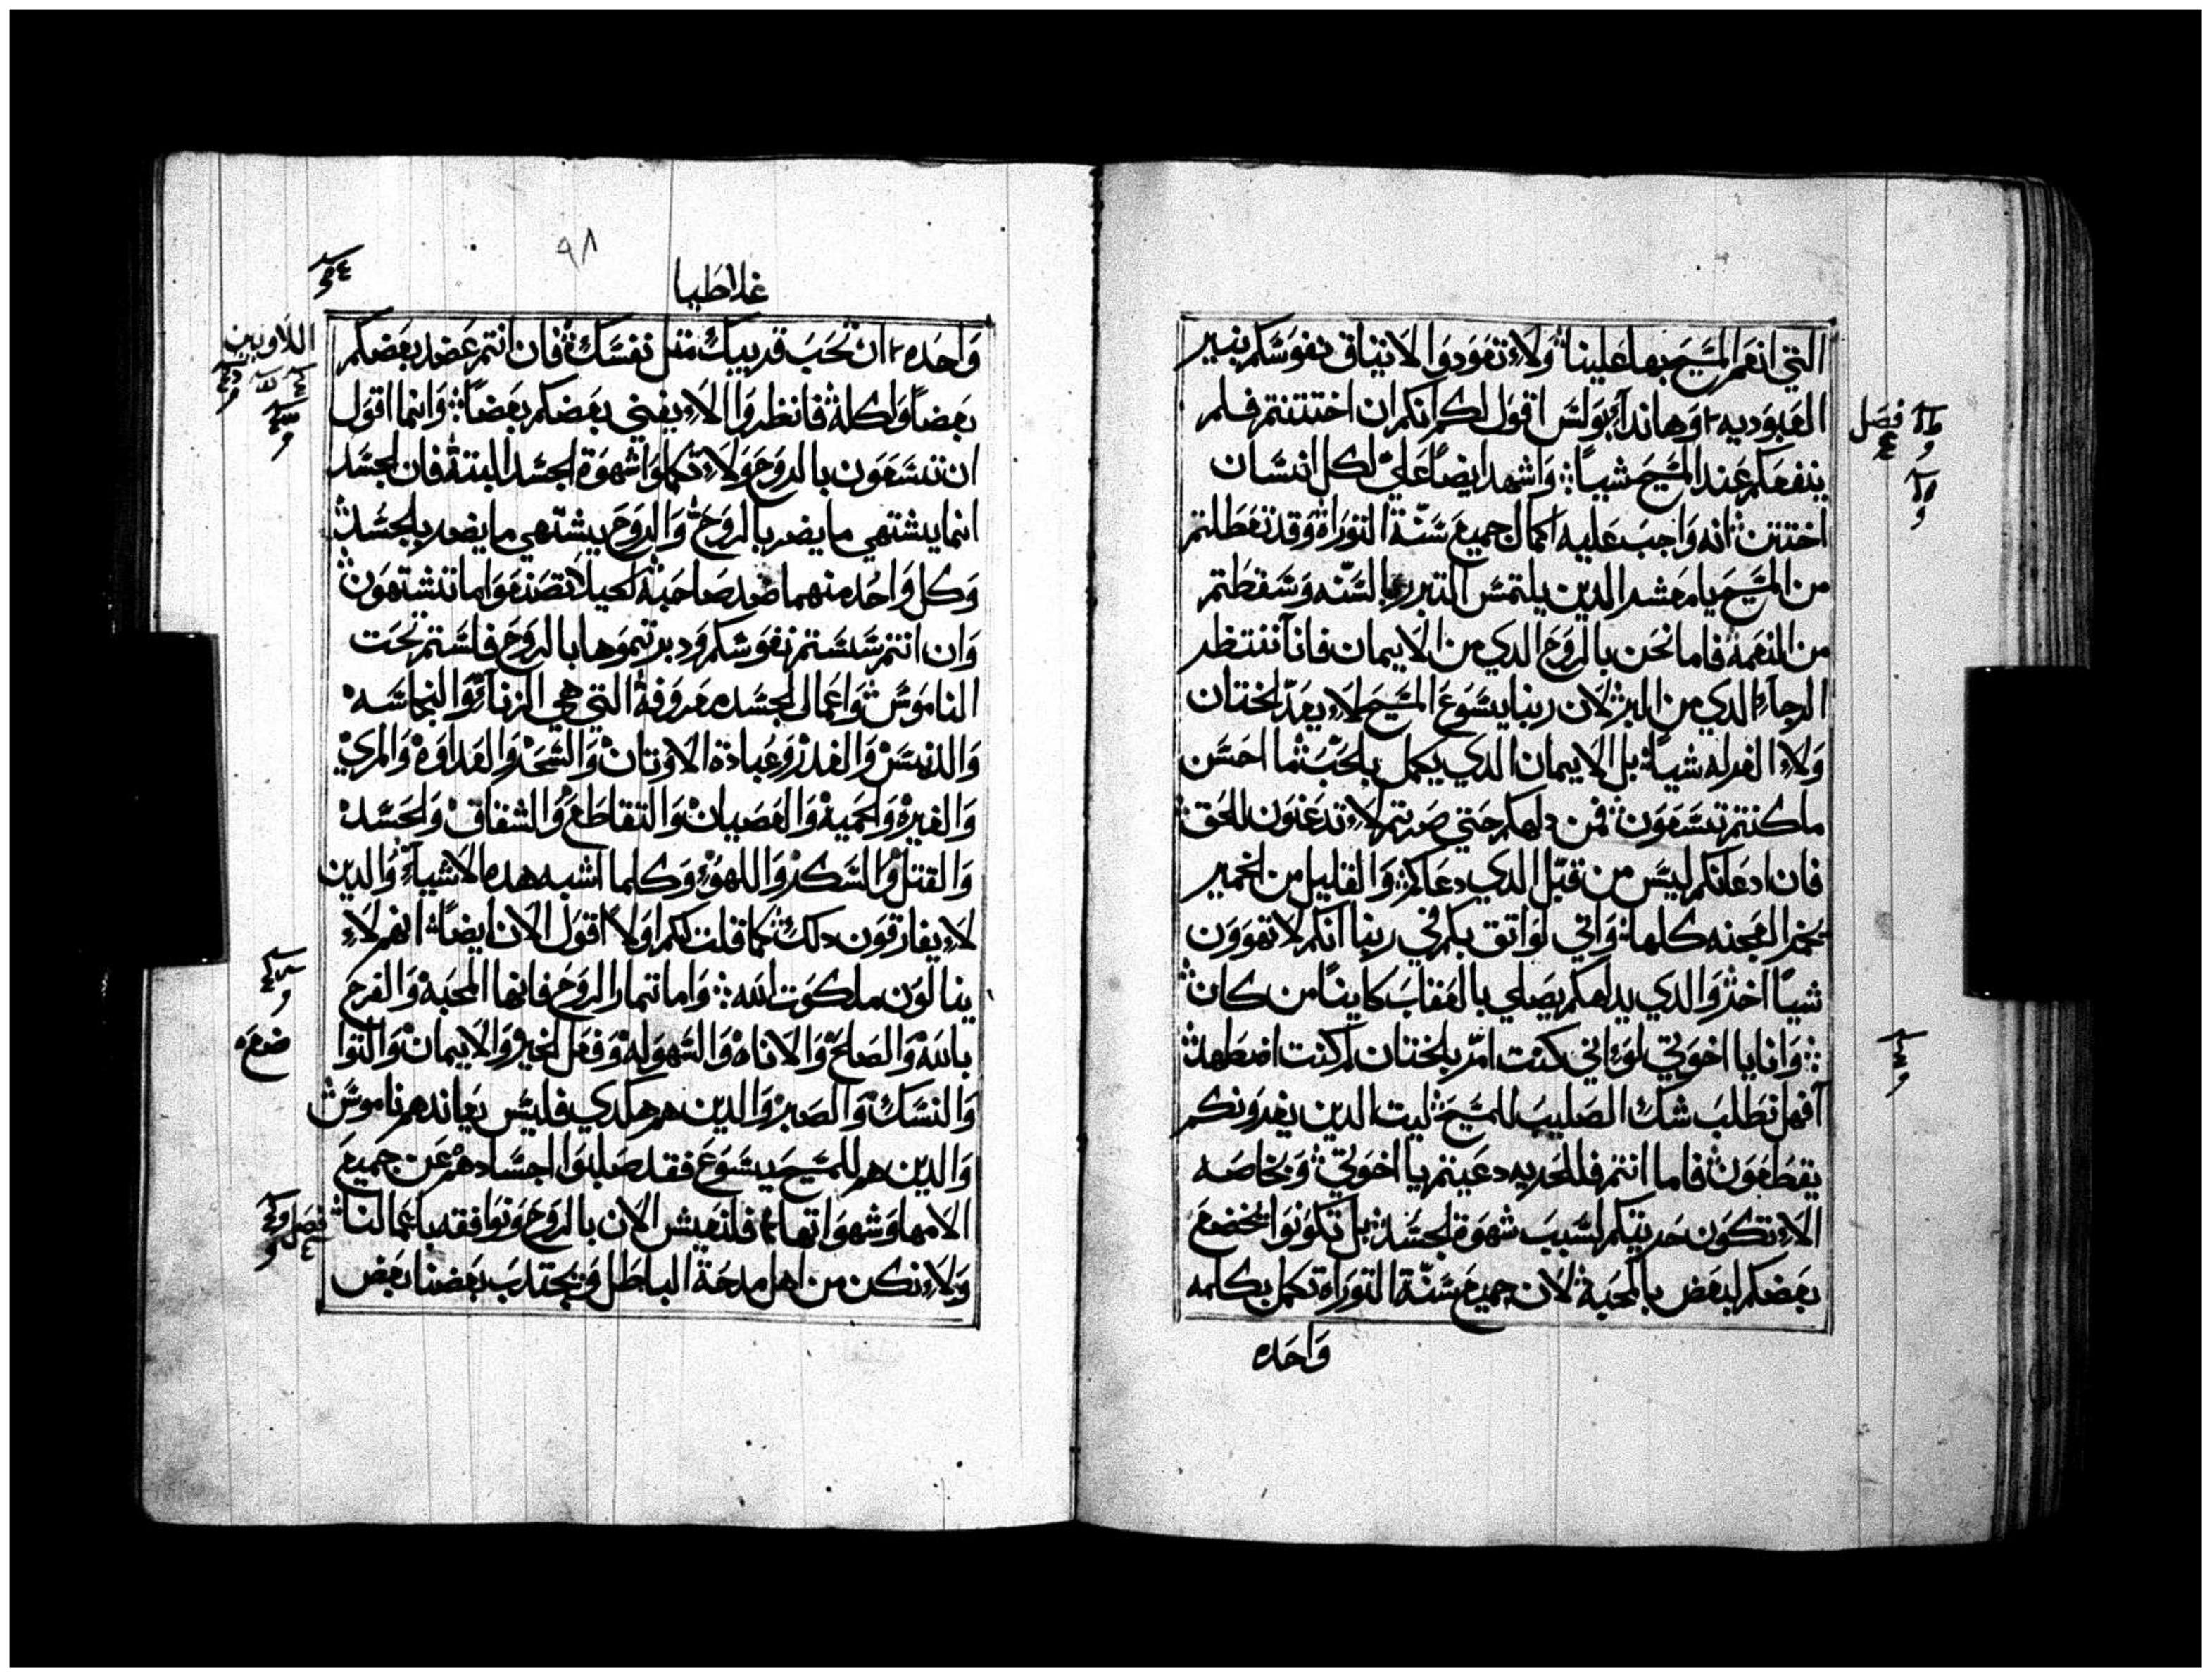 التي انعم المسيح بها علينا ولا تعودوا الاتيثاق نفوسكم بنير
العبوديه وهاندا بولس اقول لكم انكم ان اختتنتم فلم
ينفعكم عند المسيح شيا واشهد ايضا علي لكل انسان
اختتن انه واجب عليه اكمال جميع سنة التوراة وقد تعطلتم
من المسيح يا معشر الدين يلتمس التبرر بالسنه وسقطتم
من النعمة فاما نحن بالروح الدي من الايمان فانا ننتظر
الرجاء الدي من البر لان ربنا يسوع المسيح لا يعد لختان
ولا الغرله شيا بل الايمان الدي يكمل بالحب ما احسن
ما كنتم تسعون فمن دلهكم حتي صرتم لا تدعنون للحق
فان ادعانكم ليس من قبل الدي دعاكم والقليل من الخمير
يخمر العجنه كلها واني لواتق بكم في ربنا انكم لا تهوون
شيا اخر والدي يدلهكم يصلي بالعقاب كاينا من كان
وانا يا اخوتي لو اني كنت امر بلختان لم كنت اضطهد
آفهل نطلب شك الصليب للمسيح ليت الدين يغرونكم
يقطعون فاما انتم فللحريه دعيتم يا اخوتي وبخاصه
الا تكون حريتكم لسبب شهوة الجسد بل تكونوا يخضع
بعضكم لبعض بالمحبة لان جميع سنة التوراة تكمل بكلمه
واحده
فصل
٩٨
غلاطيا
واحده ان تحب قريبك متل نفسك فان انتم عضد بعضكم
بعضا وكله فانظروا الا يفني بعضكم بعضا وانما اقول
ان تسعون بالروح ولا تكملوا شهوة الجسد البتة فان لجسد
انما يشتهي ما يضر بالروح والروح يشتهي ما يضر بالجسد
وكل واحد منهما ضد صاحبة لكيلا تصنعوا ما تشتهون
وان انتم سسستم نفوسكم ودبرتموها بالروح فلستم تحت
الناموس واعمال الجسد معروفة التي هي الزناء والنجاسه
والدنس والغدر وعبادة الاوتان والسحر والعداوه والمري
والغيرة والحمية والعصيان والتقاطع والشقاق والحسد
والقتل والسكر واللهو وكلما اشبه هده الاشياء والدين
لا يفارقون دلك كما قلت لكم اولا اقول الان ايضا انهم لا
ينالون ملكوت الله واما تمار الروح فانها المحبة والفرح
بالله والصلح والاناه والسهولة وفعل الخير والايمان والتوا
والنسك والصبر والدين هم هكدي فليس يعاندهم ناموس
والدين هم للمسيح يسوع فقد صلبوا اجسادهم عن جميع
الامها وشهواتها فلنعيش الان بالروح ونوافقه باعمالنا
ولا نكن من اهل مدحة الباطل ويجتدب بعضنا بعض
اللاويين
ضعه
فصل